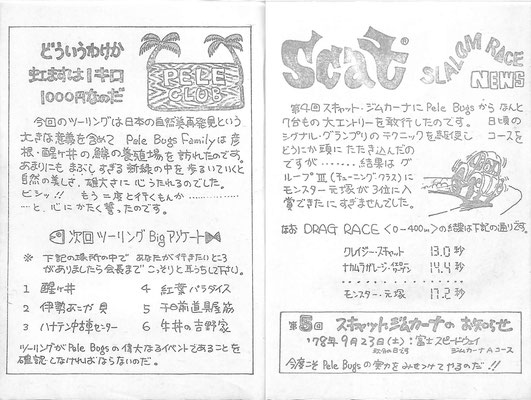 どういうわけか
虹ますは1キロ
1000円なのだ
PELE
CLUB
今回のツーリングは日本の自然美再発見という
大きな意義を含めて Pele Bugs Familyは彦
根・醒ヶ井の鱒の養殖場を訪れたのです。
あまりにもまぶしすぎる新緑の中を歩いていくと
自然の美しさ、雄大さに心うたれるのでした。
ビシッ!! もう二度と行くもんか…………
…………と、心にかたく誓ったのです。
次回ツーリングBigアンケート
※ 下記の場所の中で あなたが行きたいところ
がありましたら会長まで こっそりと耳うちして下さい。
1 醒ヶ井
2 伊勢あこが貝
3 ハナテン中古車センター
4 紅葉パラダイス
5 千日前道具屋筋
6 牛丼の吉野家
ツーリングがPele Bugsの偉大なるイベントであることを
確認しなければならないのだ。
Scat
SLALOM RACE
NEWS
第4回スキャット・ジムカーナにPele Bugsからなんと
7台もの大エントリーを敢行したのです。 日頃の
シグナル・グランプリのテクニックを駆使し コースを
どうにか頭にたたき込んだの
ですが………結果はグ
ループⅢ(チューニングクラス)に
モンスター元塚が3位に入
賞できたにすぎませんでした。
なお DRAG RACE <0-400m>の結果は下記の通りです。
クレイジー・スキャット 13.0秒
ナカムラガレージ 14.4秒
モンスター・元塚 17.2秒
第5回 スキャットジムカーナのお知らせ
'78年9月23日(土):富士スピードウェイ
秋分の日です ジムカーナAコース
今度こそPele Bugsの実力をみせつけてやるのだ!!